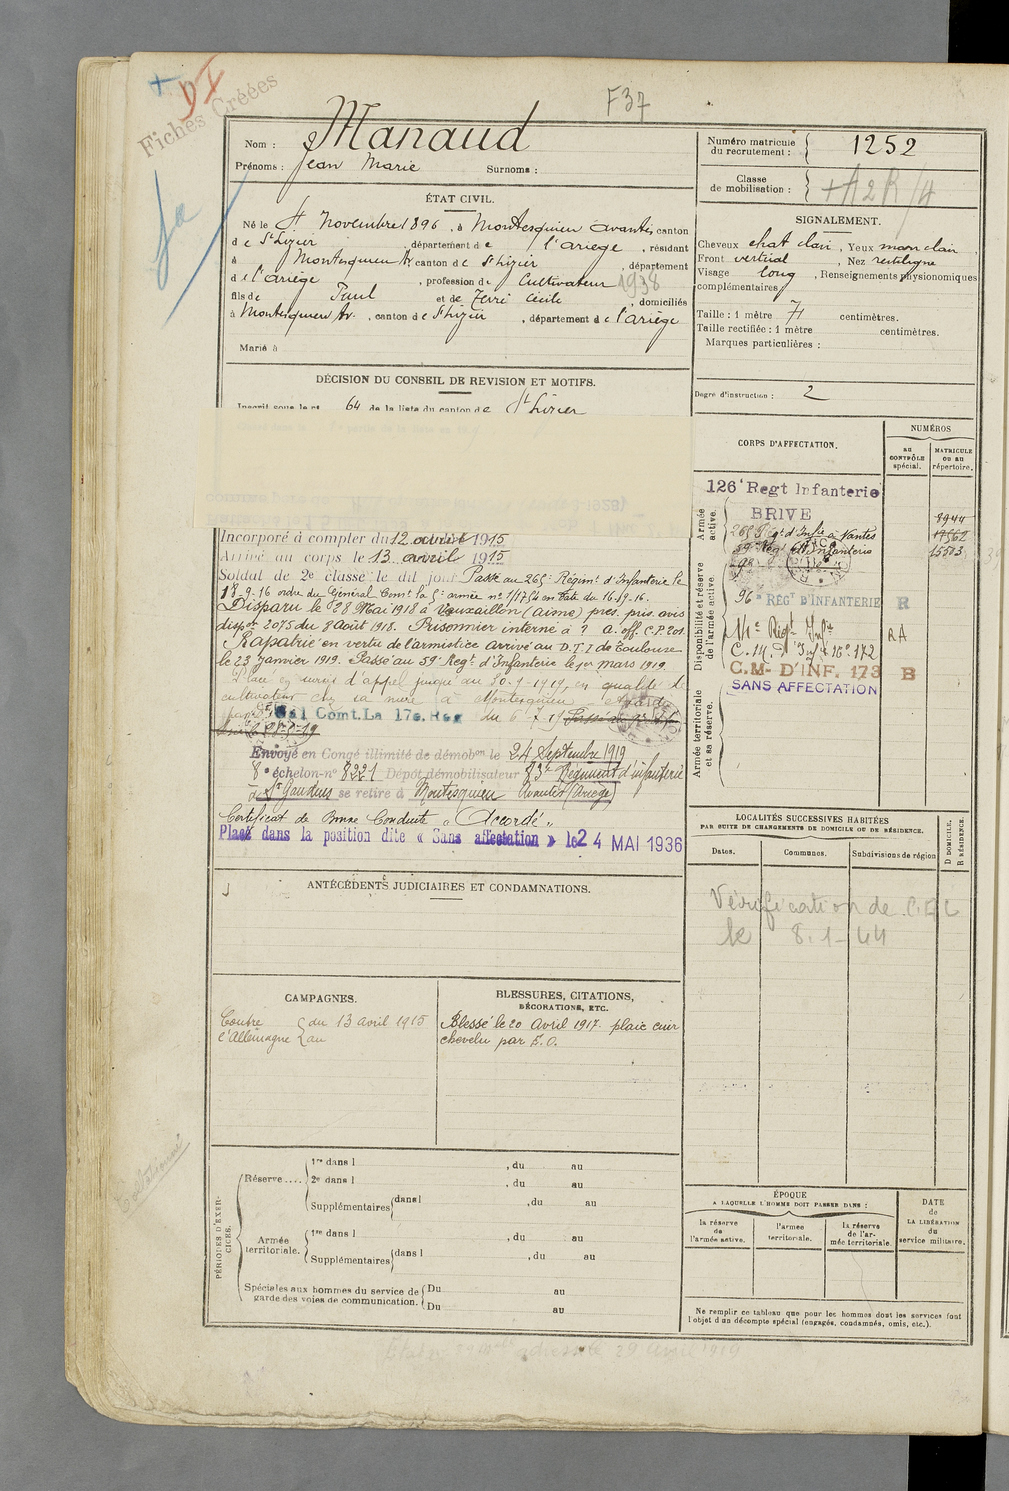 + DI
Fiches Créées
F37
Nom : Manaud
Prénoms : Jean Marie Surnoms :
Numéro matricule du recrutement : 1252
Classe de mobilisation :
ÉTAT CIVIL.
Né le Novembre 1896, à Montesquieu Avantès, canton
de St Lizier, département de l'Ariège, résidant
à Montesquieu Av. canton de St Lizier, département
de l'Ariège, profession de Cultivateur 1938
fils de Paul et de Cécile, domiciliés
à Montesquieu Av., canton de St Lizier, département de l'Ariège
Marié à
SIGNALEMENT.
Cheveux chat clair, Yeux marr clair
Front vertical, Nez rectiligne
Visage long, Renseignements physionomiques
complémentaires
Taille : 1 mètre 71 centimètres.
Taille rectifiée : 1 mètre centimètres.
Marques particulières :
Degré d'instruction : 2
DÉCISION DU CONSEIL DE REVISION ET MOTIFS.
Inscrit sous le n° 64 de la liste du canton de St Lizier
Incorporé à compter du 12 avril 1915
Arrivé au corps le 13 avril 1915
Soldat de 2e classe le dit jour Passé au 265e Régimt d'Infanterie le
18-9-16 ordre du Général Comt la 5e armée n° 1/1754 en date du 16-9-16.
Disparu le 28 Mai 1918 à Vauxaillon (Aisne) prés. pris. avis
disp. 2075 du 8 Août 1918. Prisonnier interné à ? a. off. C.P. 201.
Rapatrié en vertu de l'armistice arrivé au D.T.I de Toulouse
le 23 Janvier 1919. Passé au 59e Regt d'Infanterie le 1er mars 1919.
Placé en sursis d'appel jusqu'au 30-9-1919, en qualité de
cultivateur chez sa mère à Montesquieu-Avantès
Gal Comt. La 17e. Reg du
Envoyé en Congé illimité de démobon le 24 Septembre 1919
8e échelon-n° 8221 Dépôt démobilisateur 83e Régiment d'infanterie
de St Gaudens se retire à Montesquieu Avantès (Ariège)
Certificat de Bonne Conduite "Accordé"
Placé dans la position dite « Sans affectation » le 24 MAI 1936
CORPS D'AFFECTATION.
NUMÉROS
AU CONTRÔLE spécial.
MATRICULE OU AU répertoire.
Armée active.
126e Regt Infanterie
BRIVE
8944
265e Régt d'Infie à Nantes
17562
59e Regt d'Infanterie
15503
Disponibilité et réserve de l'armée active.
96e REGT D'INFANTERIE R
Regt Infie RA
C.M. d'Inf. n° 172
C.M- D'INF. 173 B
SANS AFFECTATION
Armée territoriale et sa réserve.
ANTÉCÉDENTS JUDICIAIRES ET CONDAMNATIONS.
LOCALITÉS SUCCESSIVES HABITÉES
PAR SUITE DE CHANGEMENTS DE DOMICILE OU DE RÉSIDENCE.
Dates. Communes. Subdivisions de région D DOMICILE. R RÉSIDENCE.
Vérification de
le 8.1-44
CAMPAGNES.
Contre l'Allemagne { du 13 avril 1915
au
BLESSURES, CITATIONS,
DÉCORATIONS, ETC.
Blessé le 20 Avril 1917 plaie cuir
chevelu par E.O.
PÉRIODES D'EXERCICES.
Réserve.... 1re dans l , du au
2e dans l , du au
Supplémentaires dans l , du au
Armée territoriale. 1re dans l , du au
Supplémentaires dans l , du au
Spéciales aux hommes du service de garde des voies de communication. Du au
Du au
ÉPOQUE
A LAQUELLE L'HOMME DOIT PASSER DANS :
la réserve de l'armée active.
l'armée territoriale.
la réserve de l'armée territoriale.
DATE de LA LIBÉRATION du service militaire.
Ne remplir ce tableau que pour les hommes dont les services font
l'objet d'un décompte spécial (engagés, condamnés, omis, etc.).
29 avril 1919